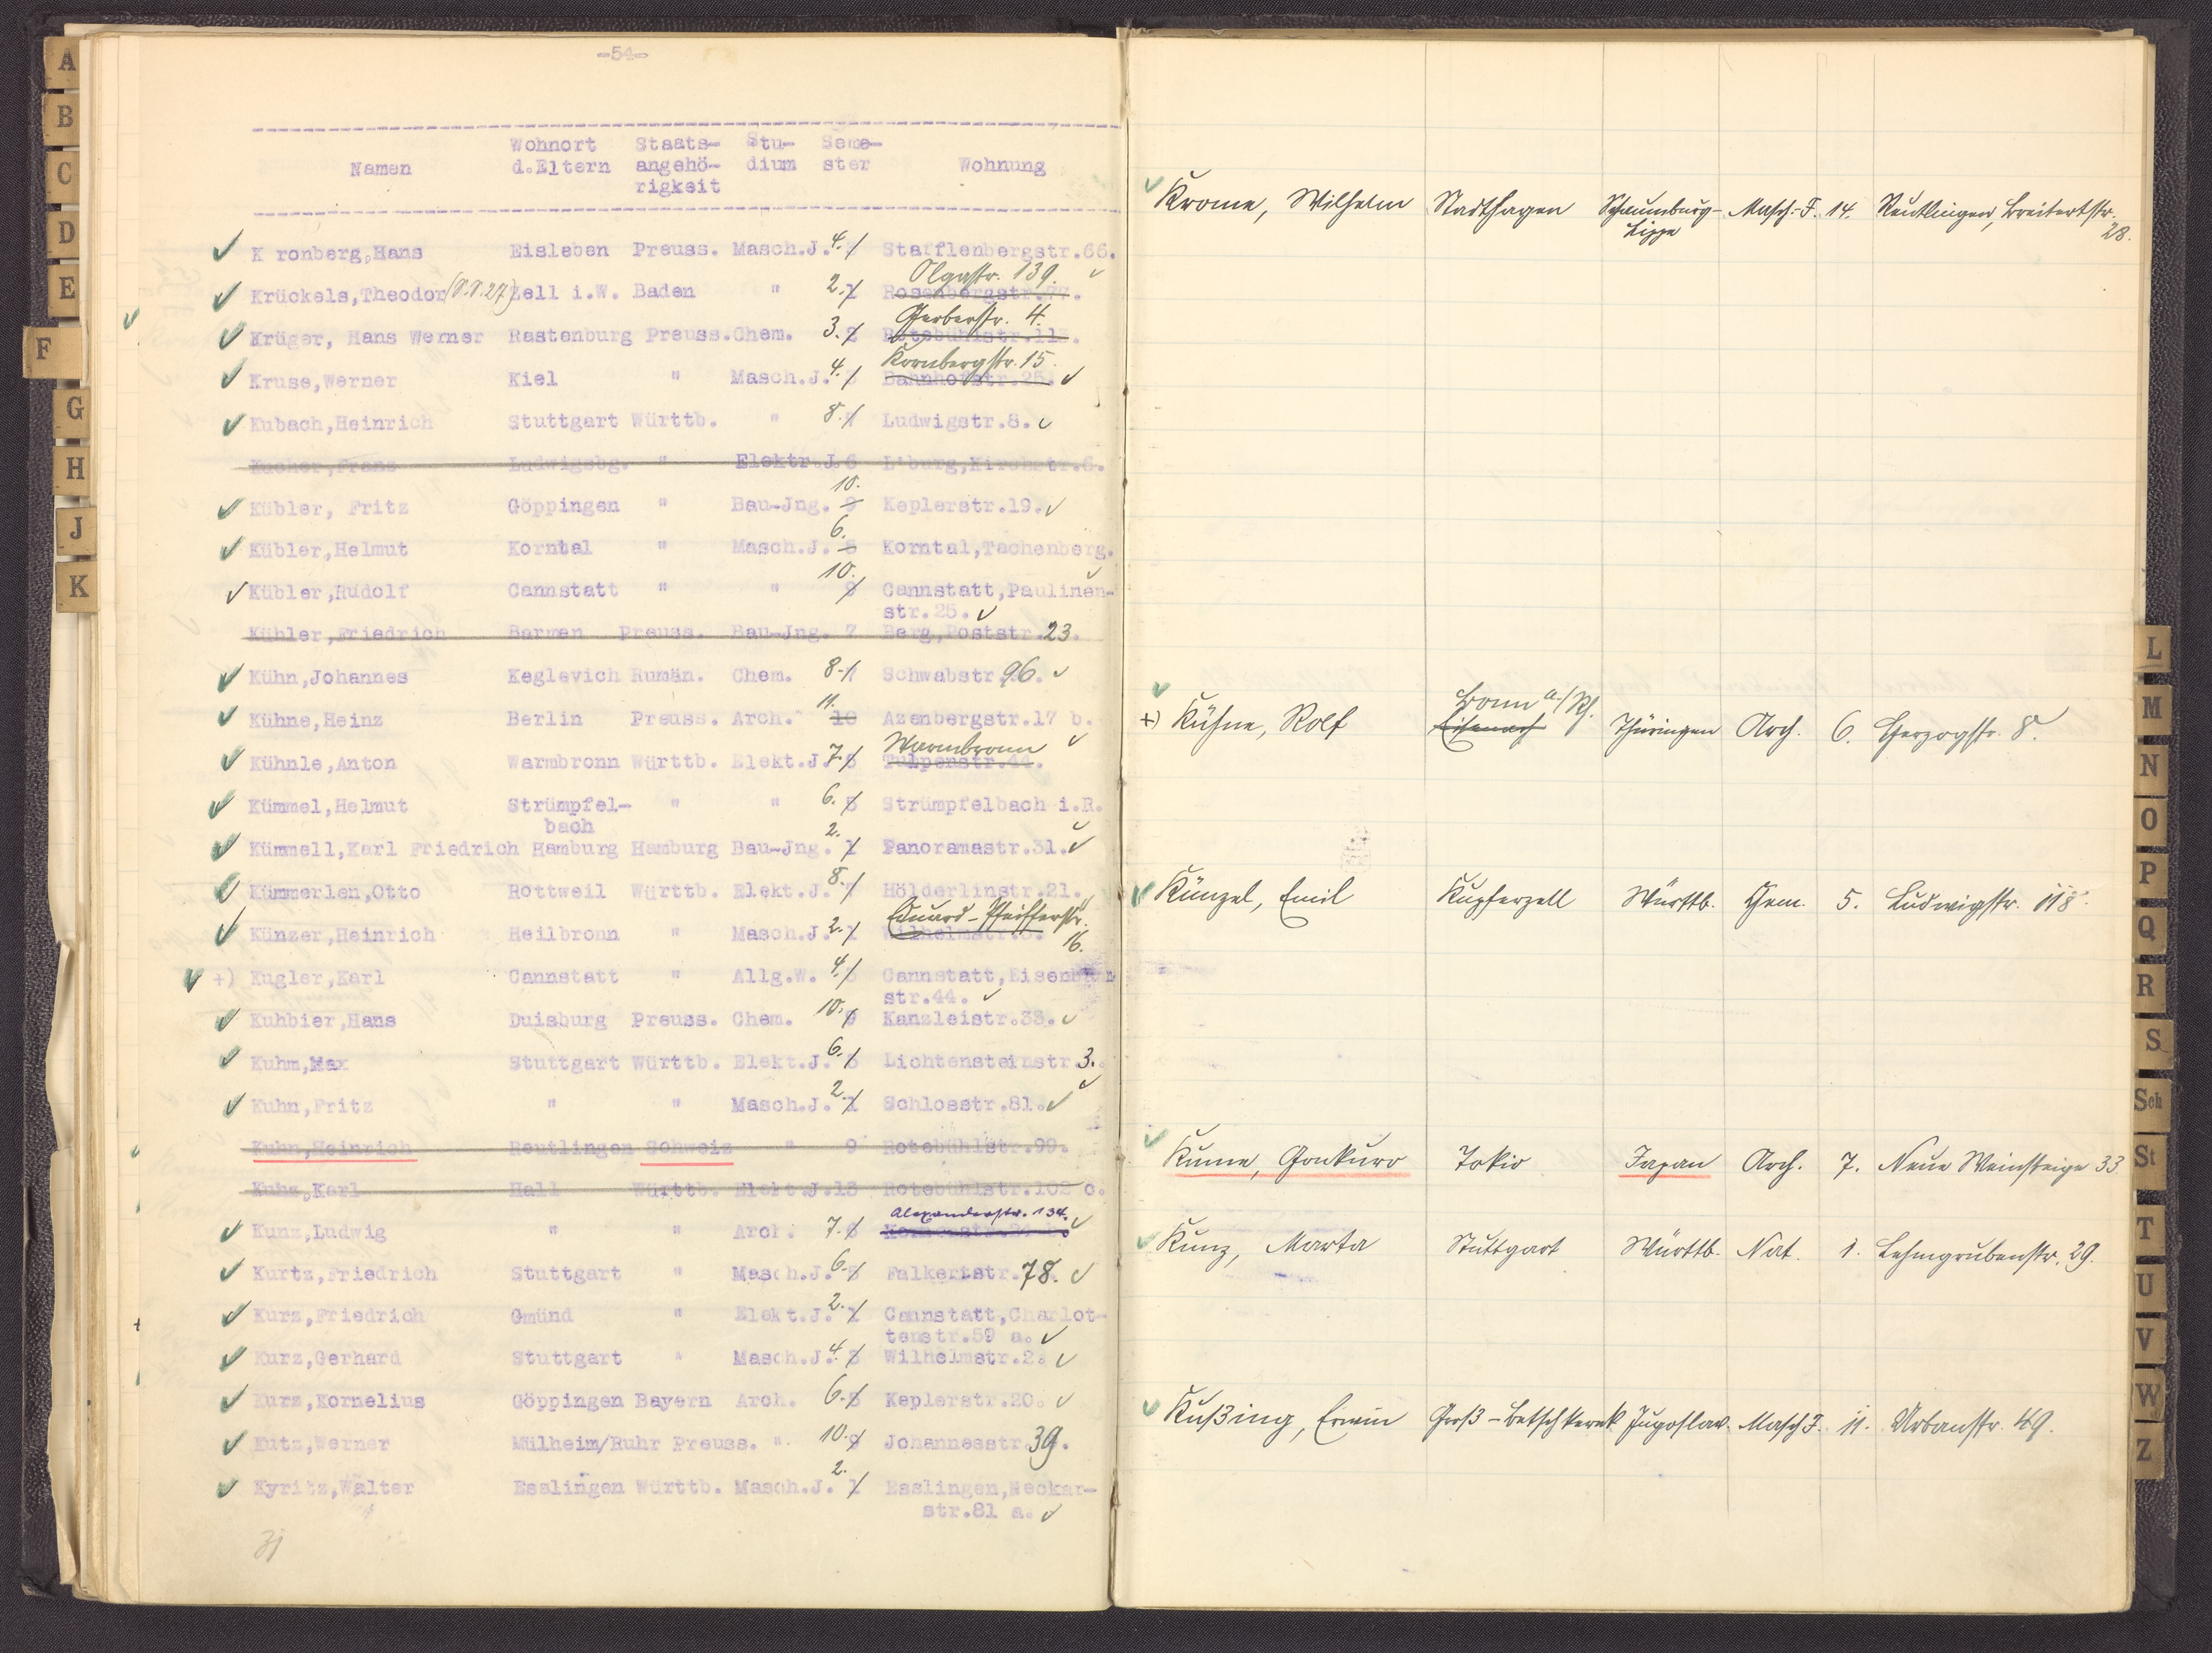 -54-
Namen Wohnort d.Eltern Staats-angehö-rigkeit Stu-dium Seme-ster Wohnung
K ronberg,Hans Eisleben Preuss. Masch.J. 4. Stafflenbergstr.66.
Olgastr. 139.
Krückels,Theodor (S.S.27) Zell i.W. Baden " 2. 1 Rosenbergstr.
Gerberstr. 4.
Krüger, Hans Werner Rastenburg Preuss. Chem. 3. 2 Rotebühlstr.11
Kornbergstr. 15.
Kruse,Werner Kiel " Masch.J. 4. Bahnhofstr.25.
Kubach,Heinrich Stuttgart Württb. " 8. Ludwigstr.8.
Kucher,Franz Ludwigsbg. " Elektr.J. 6 L'burg,Kirchstr.6.
Kübler, Fritz Göppingen " Bau-Jng. 10. 9 Keplerstr.19.
Kübler,Helmut Korntal " Masch.J. 6. 5 Korntal,Tachenberg.
Kübler,Rudolf Cannstatt " " 10. 9 Cannstatt,Paulinen-
str.25.
Kübler,Friedrich Barmen Preuss. Bau-Jng. 7 Berg,Poststr.23.
Kühn,Johannes Keglevich Rumän. Chem. 8. Schwabstr.96.
Kühne,Heinz Berlin Preuss. Arch. 11. 10 Azenbergstr.17 b.
Warmbronn
Kühnle,Anton Warmbronn Württb. Elekt.J. 7. 6 Tulpenstr.44.
Kümmel,Helmut Strümpfel- " " 6. 5 Strümpfelbach i.R.
bach
Kümmell,Karl Friedrich Hamburg Hamburg Bau-Jng. 2. 1 Panoramastr.31.
Kümmerlen,Otto Rottweil Württb. Elekt.J. 8. Hölderlinstr.21.
Eduard-Pfeifferstr. 16.
Künzer,Heinrich Heilbronn " Masch.J. 2. 1 Wilhelmstr.
+) Kugler,Karl Cannstatt " Allg.W. 4. 3 Cannstatt,Eisenbahn
str.44.
Kuhbier,Hans Duisburg Preuss. Chem. 10. 9 Kanzleistr.33.
Kuhm,Max Stuttgart Württb. Elekt.J. 6. 5 Lichtensteinstr.3.
Kuhn,Fritz " " Masch.J. 2. 1 Schlosstr.81.
Kuhn,Heinrich Reutlingen Schweiz " 9 Rotebühlstr.99.
Kuhs,Karl Hall Württb. Elekt.J. 13 Rotebühlstr.102 c.
Alexanderstr. 134.
Kunz,Ludwig " " Arch. 7. 6
Kurtz,Friedrich Stuttgart " Masch.J. 6. 5 Falkertstr.78.
Kurz,Friedrich Gmünd " Elekt.J. 2. 1 Cannstatt,Charlot-
tenstr.59 a.
Kurz,Gerhard Stuttgart " Masch.J. 4. 3 Wilhelmstr.2.
Kurz,Kornelius Göppingen Bayern Arch. 6. 5 Keplerstr.20.
Kutz,Werner Mülheim/Ruhr Preuss. " 10. 9 Johannesstr.39.
Kyritz,Walter Esslingen Württb. Masch.J. 2. 1 Esslingen,Neckar-
str.81 a.
31
Krome, Wilhelm Stadthagen Schaumburg-Lippe Masch.-J. 14. Reutlingen, Breitertstr. 28.
Bonn a./Rh.
+) Kühne, Rolf Eisenach Thüringen Arch. 6. Herzogstr. 8.
Künzel, Emil Kupferzell Württb. Chem. 5. Ludwigstr. 118.
Kume, Gonkuro Tokio Japan Arch. 7. Neue Weinsteige 33.
Kunz, Marta Stuttgart Württb. Nat. 1. Lehmgrubenstr. 29.
Kußing, Erwin Groß-Betschkerek Jugoslav. Masch.J. 11. Urbanstr. 49.
A
B
C
D
E
F
G
H
J
K
L
M
N
O
P
Q
R
S
Sch
St
T
U
V
W
Z